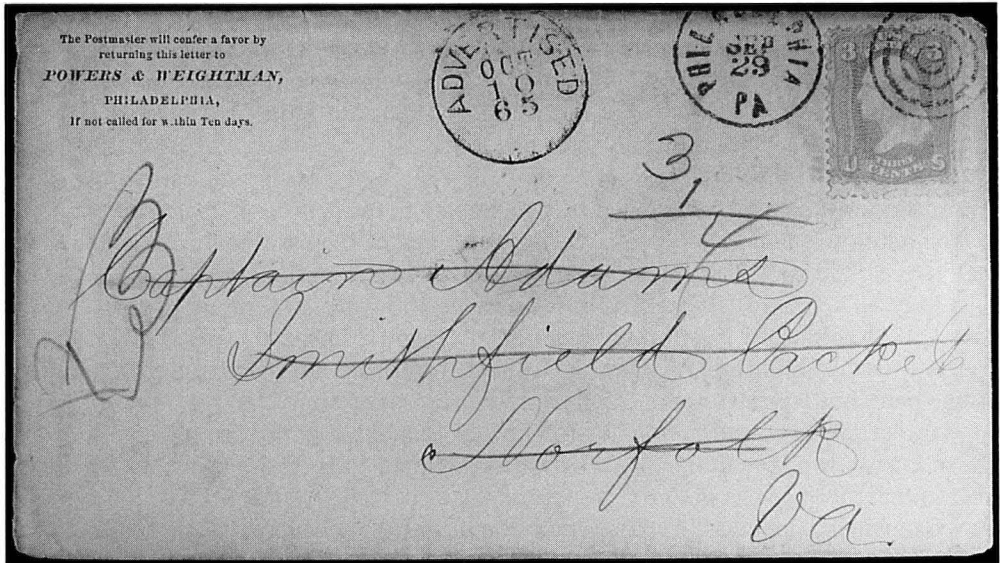 The Postmaster will confer a favor by
returning this letter to
POWERS & WEIGHTMAN,
PHILADELPHIA,
If not called for within Ten days.
ADVERTISED
OCT
10
65
PHILADELPHIA
SEP
29
PA
3
U S
THREE
CENTS
3
1
4
Captain Adams
Smithfield Packet
Norfolk
Va.